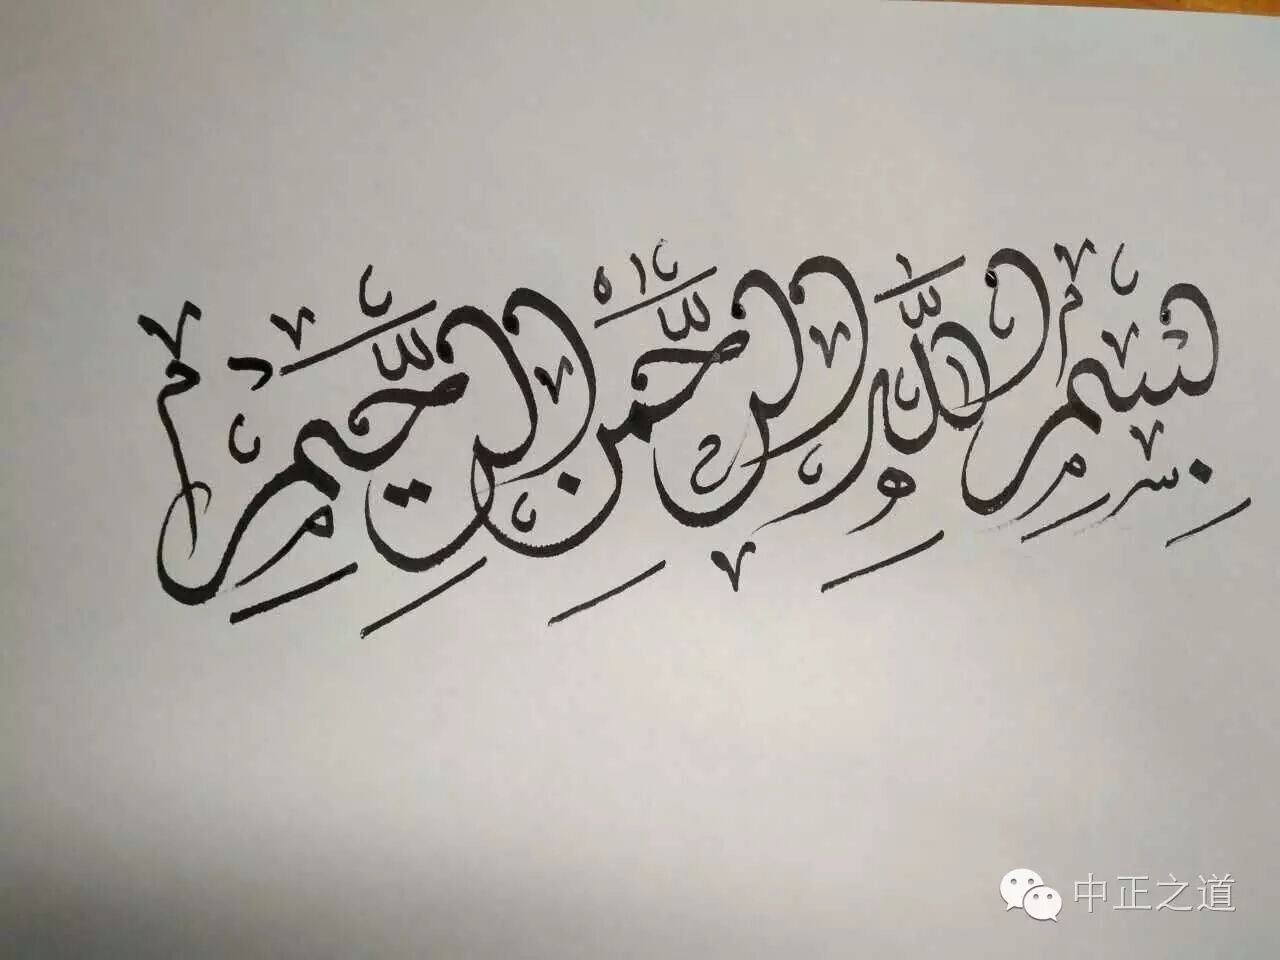 بِسْمِ اللَّهِ الرَّحْمَنِ الرَّحِيمِ
中正之道